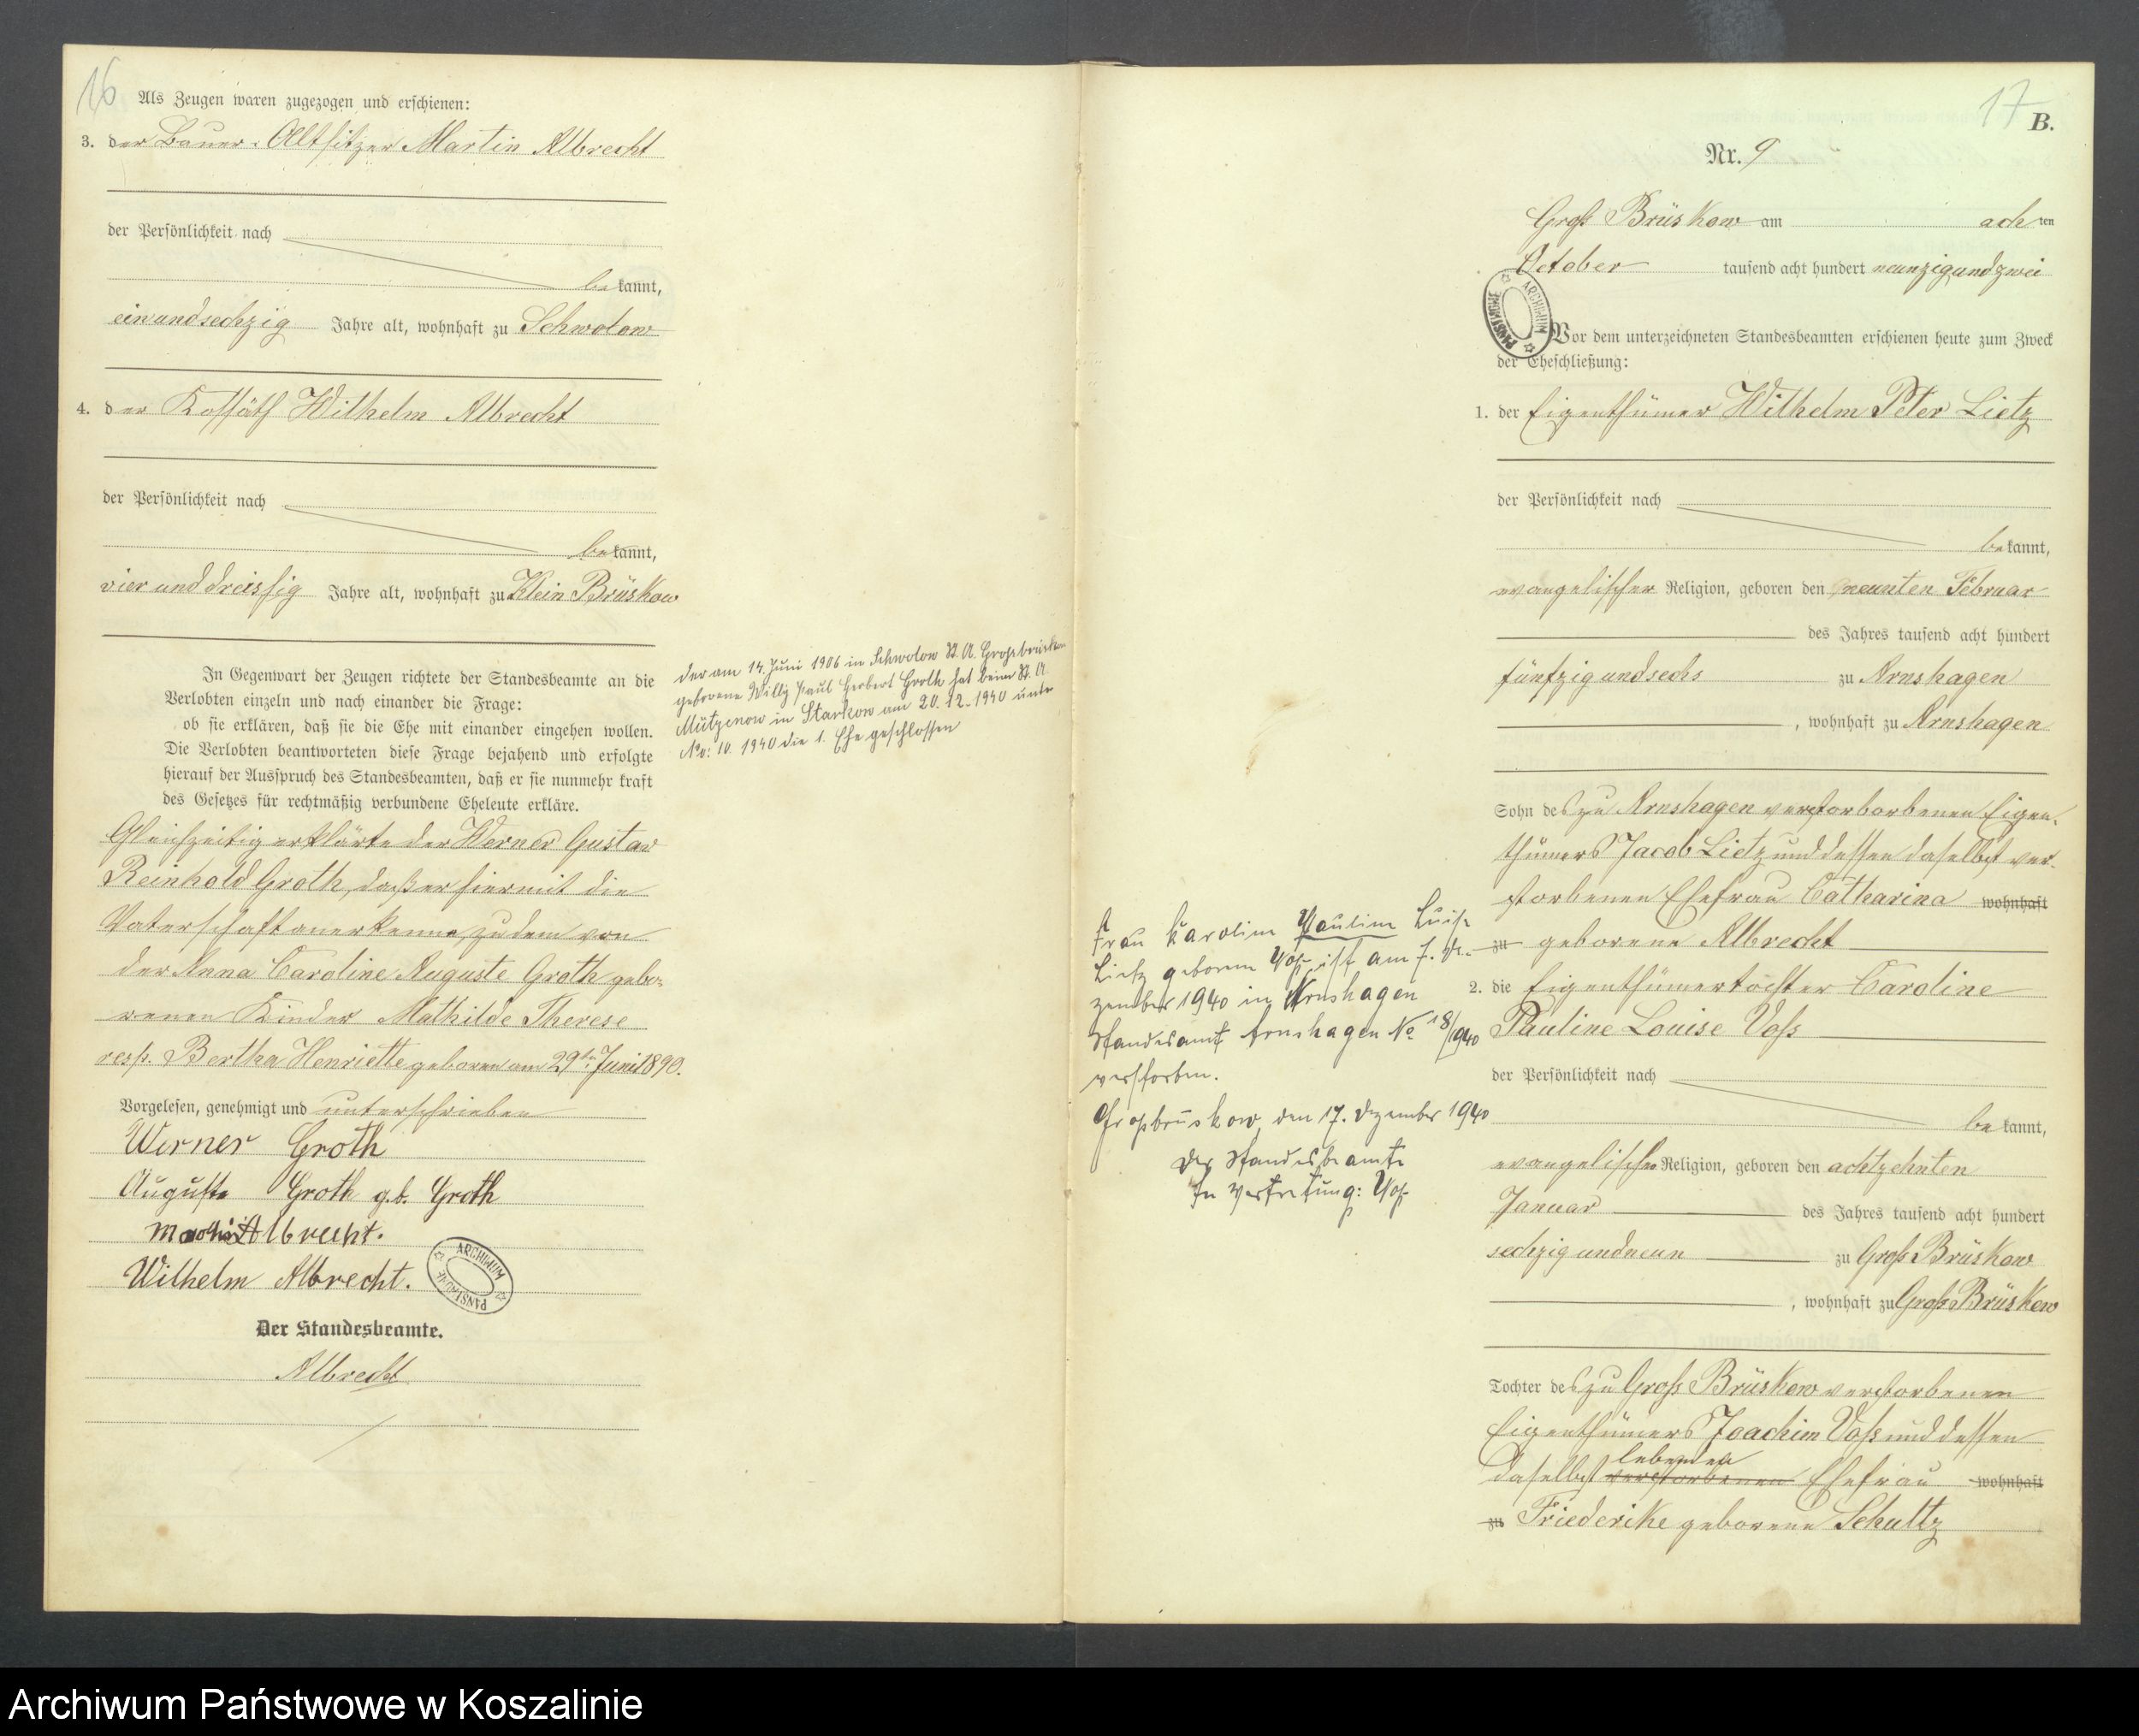 16
Als Zeugen waren zugezogen und erschienen:
3. der Bauer-Altsitzer Martin Albrecht
der Persönlichkeit nach
be kannt,
einundsechzig Jahre alt, wohnhaft zu Schwolow
4. der Kossäth Wilhelm Albrecht
der Persönlichkeit nach
bekannt,
vierunddreissig Jahre alt, wohnhaft zu Klein Brüskow
In Gegenwart der Zeugen richtete der Standesbeamte an die
Verlobten einzeln und nach einander die Frage:
ob sie erklären, daß sie die Ehe mit einander eingehen wollen.
Die Verlobten beantworteten diese Frage bejahend und erfolgte
hierauf der Ausspruch des Standesbeamten, daß er sie nunmehr kraft
des Gesetzes für rechtmäßig verbundene Eheleute erkläre.
Gleichzeitig erklärte der Werner Gustav
Reinhold Groth, daß er hiermit die
Vaterschaft anerkenne, zu dem von
der Anna Caroline Auguste Groth gebo-
renen Kinder Mathilde Therese
resp. Bertha Henriette geboren am 29ten Juni 1890.
Vorgelesen, genehmigt und unterschrieben
Werner Groth
Auguste Groth g.b. Groth
Martin Albrecht.
Wilhelm Albrecht.
ARCHIWUM PAŃSTWOWE
Der Standesbeamte.
Albrecht
der am 14. Juni 1906 in Schwolow St. A. Grossbrüskow
geborene Willy Paul Herbert Groth hat beim St. A.
Mützenow in Starkow am 20.12.1940 unter
No: 10. 1940 die 1. Ehe geschlossen
17
B.
Nr. 9
Groß Brüskow am achten
October tausend acht hundert neunzigundzwei
ARCHIWUM PAŃSTWOWE
Vor dem unterzeichneten Standesbeamten erschienen heute zum Zweck
der Eheschließung:
1. der Eigenthümer Wilhelm Peter Lietz
der Persönlichkeit nach
be kannt,
evangelischer Religion, geboren den neunten Februar
des Jahres tausend acht hundert
fünfzigundsechs zu Arnshagen
, wohnhaft zu Arnshagen
Sohn des zu Arnshagen verstorborbenen Eigen-
thümers Jacob Lietz und dessen daselbst ver-
storbenen Ehefrau Catharina wohnhaft
zu geborene Albrecht
2. die Eigenthümertochter Caroline
Pauline Louise Voß
der Persönlichkeit nach
be kannt,
evangelischer Religion, geboren den achtzehnten
Januar des Jahres tausend acht hundert
sechzigundneun zu Groß Brüskow
, wohnhaft zu Groß Brüskow
Tochter des zu Groß Brüskow verstorbenen
Eigenthümers Joachim Voß und dessen
lebenden
daselbst verstorbenen Ehefrau wohnhaft
zu Friederike geborene Schultz
Frau Karoline Pauline Luise
Lietz geborene Voß ist am 7. De-
zember 1940 in Arnshagen
Standesamt Arnshagen No 18/1940
verstorben.
Großbrüskow, den 17. Dezember 1940
Der Standesbeamte
In Vertretung: Voß
Archiwum Państwowe w Koszalinie